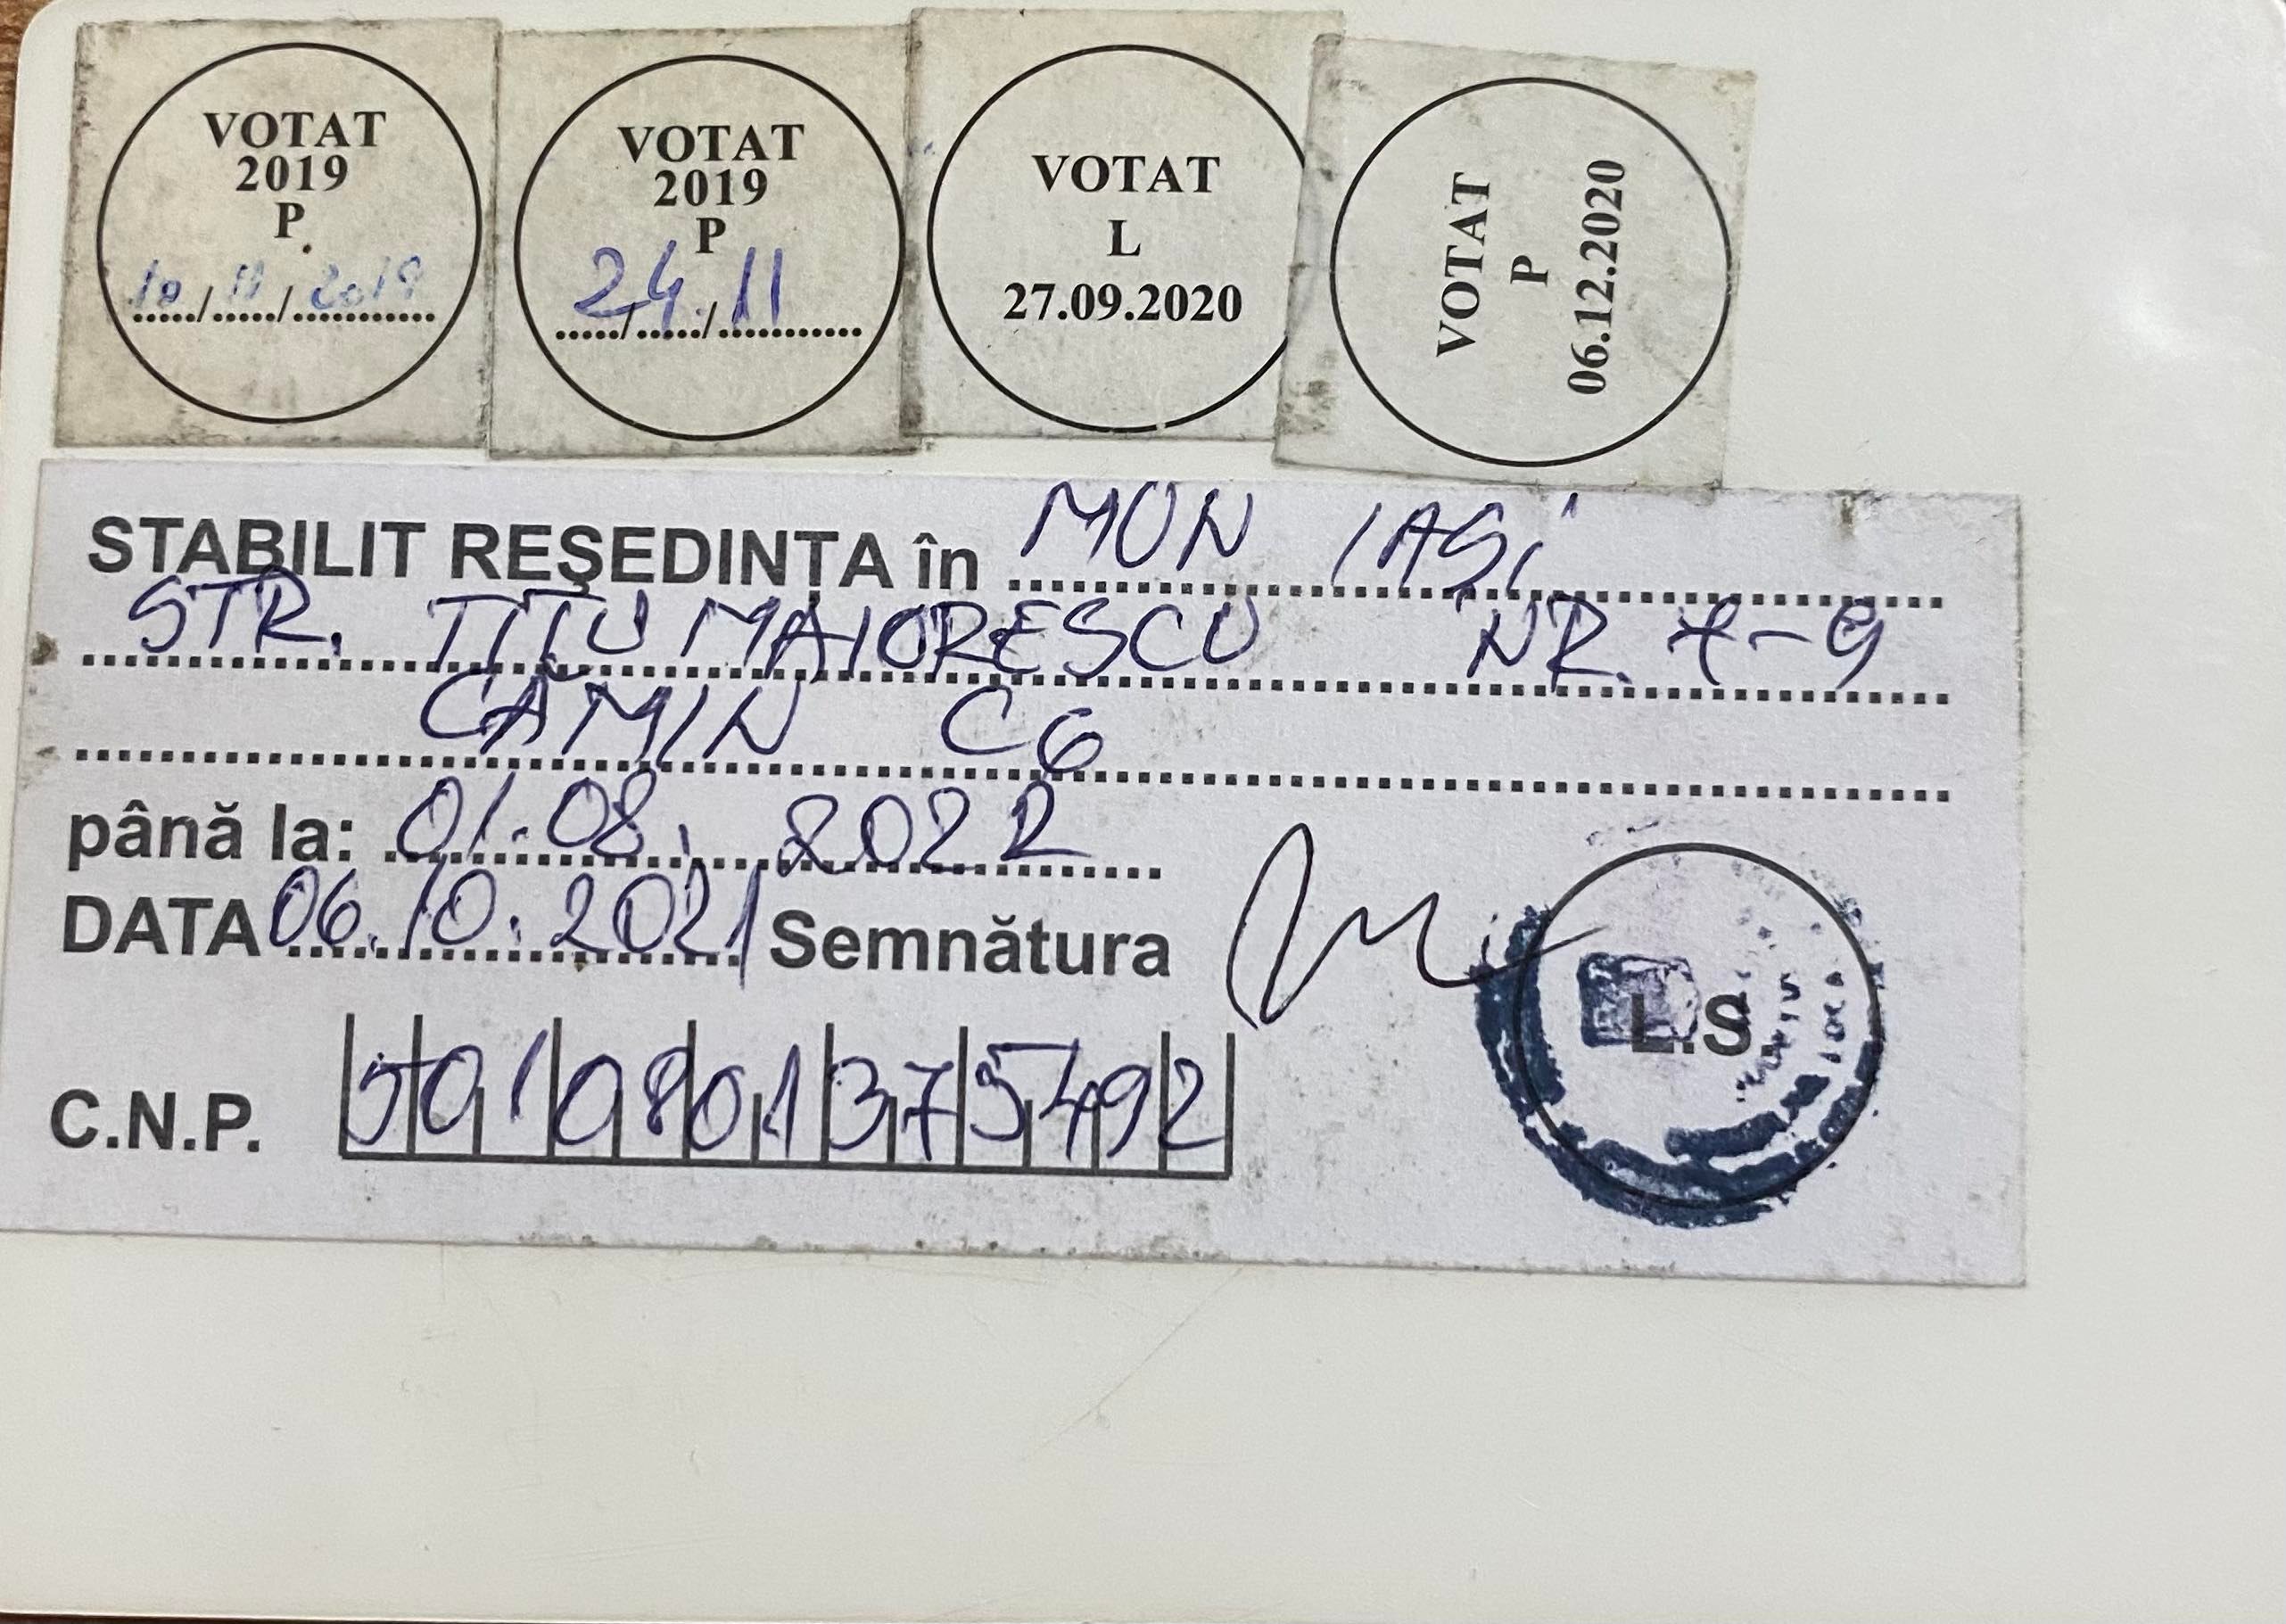 VOTAT
2019
P
10/11/2019
VOTAT
2019
P
24/11
VOTAT
L
27.09.2020
VOTAT
P
06.12.2020
STABILIT REŞEDINŢA în MUN IAŞI
STR. TITU MAIORESCU NR. 7-9
CĂMIN C6
până la: 01.08.2022
DATA 06.10.2021 Semnătura
L.S.
C.N.P. 5010801375492